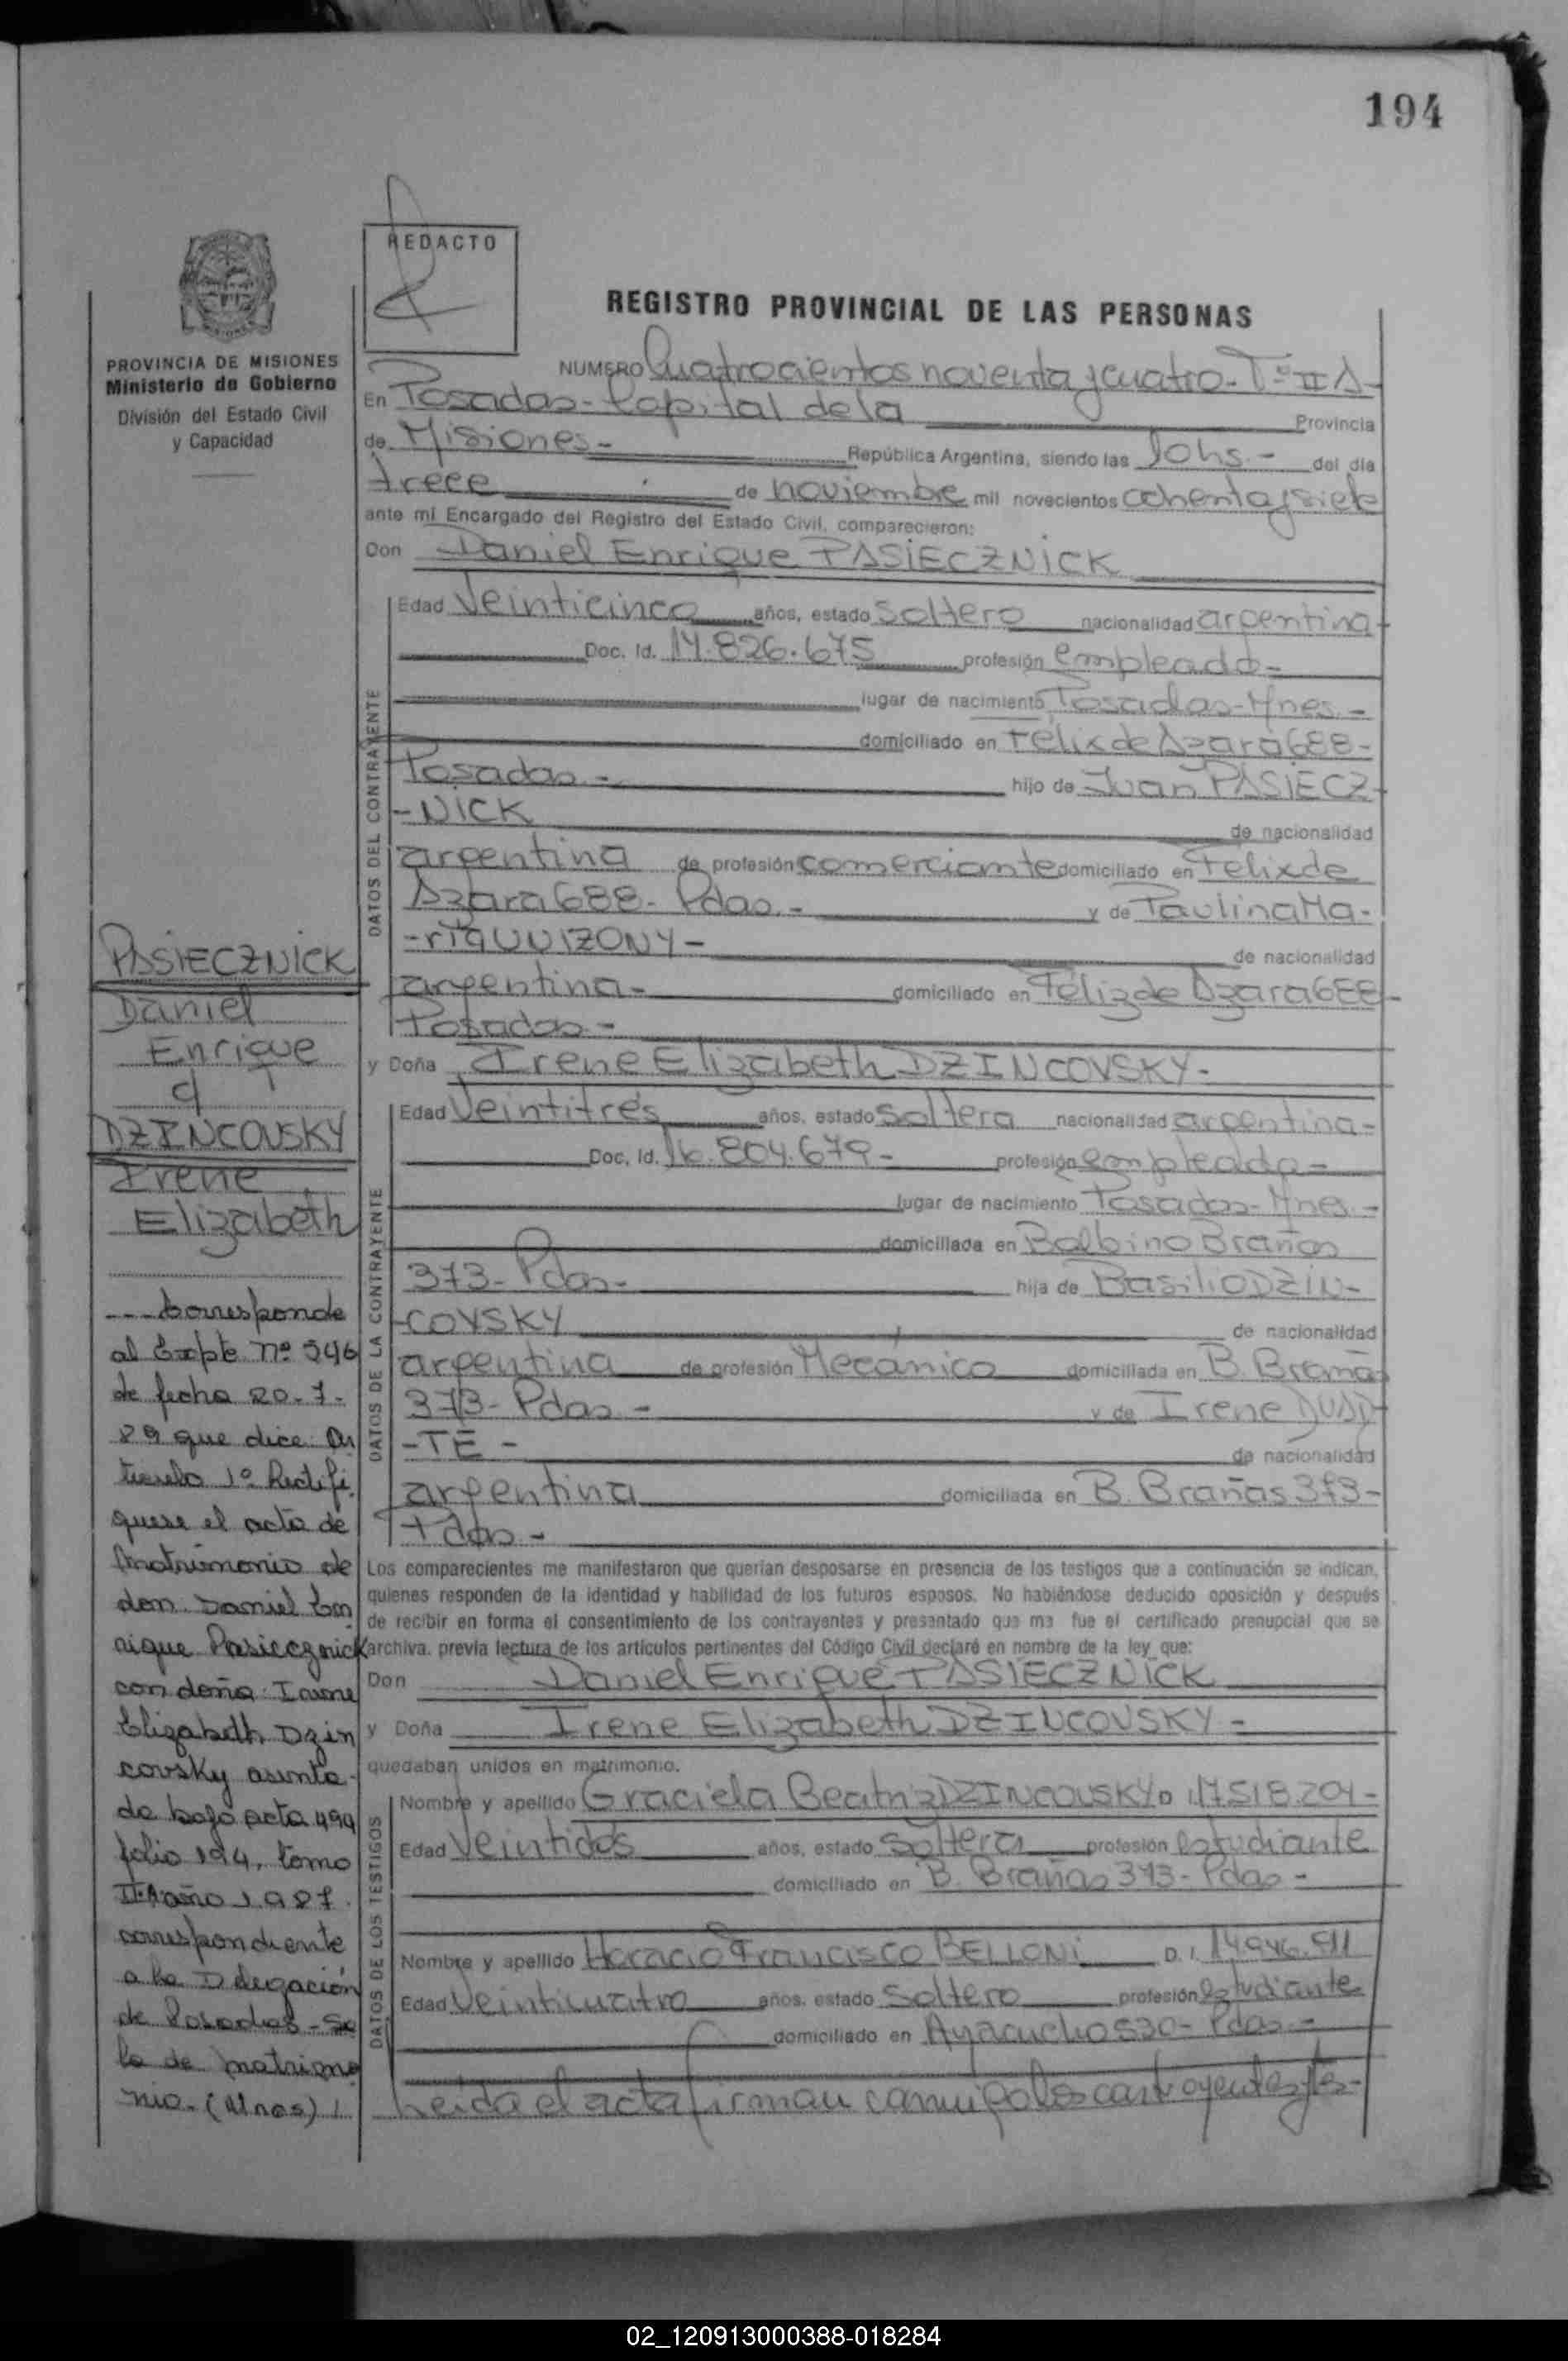 194
REDACTO
REGISTRO PROVINCIAL DE LAS PERSONAS
PROVINCIA DE MISIONES
Ministerio de Gobierno
División del Estado Civil
y Capacidad
NUMERO Cuatrocientos noventa y cuatro- Tº II A-
En Posadas- Capital de la Provincia
de Misiones- República Argentina, siendo las 10hs.- del día
trece de noviembre mil novecientos ochenta y siete
ante mí Encargado del Registro del Estado Civil, comparecieron:
Don Daniel Enrique PASIECZNICK
DATOS DEL CONTRAYENTE
Edad Veinticinco años, estado soltero nacionalidad argentina-
Doc. Id. 14.826.675 profesión empleado-
lugar de nacimiento Posadas-Mnes.-
domiciliado en Félix de Azara 688-
Posadas- hijo de Juan PASIECZ-
-NICK de nacionalidad
argentina de profesión comerciante domiciliado en Felix de
Azara 688- Pdas.- y de Paulina Ma-
-rta de nacionalidad
argentina- domiciliado en Féliz de Azara 688-
Posadas-
y Doña Irene Elizabeth DZINCOVSKY-
DATOS DE LA CONTRAYENTE
Edad Veintitrés años, estado soltera nacionalidad argentina-
Doc. Id. 16.804.679- profesión empleada-
lugar de nacimiento Posadas-Mnes.-
domiciliada en Balbino Brañas
373- Pdas- hija de Basilio DZIN-
-COVSKY de nacionalidad
argentina de profesión Mecánico domiciliada en B. Brañas
373- Pdas- y de Irene DUAR-
-TE- de nacionalidad
argentina domiciliada en B. Brañas 373-
Pdas-
Los comparecientes me manifestaron que querían desposarse en presencia de los testigos que a continuación se indican,
quienes responden de la identidad y habilidad de los futuros esposos. No habiéndose deducido oposición y después
de recibir en forma el consentimiento de los contrayentes y presentado que me fue el certificado prenupcial que se
archiva, previa lectura de los artículos pertinentes del Código Civil declaré en nombre de la ley que:
Don Daniel Enrique PASIECZNICK
y Doña Irene Elizabeth DZINCOVSKY-
quedaban unidos en matrimonio.
DATOS DE LOS TESTIGOS
Nombre y apellido Graciela Beatriz DZINCOVSKY D.I. 17.518.204-
Edad Veintidós años, estado soltera profesión estudiante
domiciliado en B. Brañas 373- Pdas-
Nombre y apellido Horacio Francisco BELLONI D. I. 14.946.511
Edad Veinticuatro años, estado soltero profesión estudiante
domiciliado en Ayacucho 530- Pdas.-
Leida el acta firman conmigo los contrayentes y tes-
PASIECZNICK
Daniel
Enrique
c/
DZINCOVSKY
Irene
Elizabeth
---Corresponde
al Expte nº 546
de fecha 20-7-
89 que dice: Ar
tículo 1º Rectifí
quese el acta de
Matrimonio de
don Daniel En
rique Pasiecznick
con doña Irene
Elizabeth Dzin
covsky asenta-
da bajo acta 494
folio 194, tomo
II A año 1.987.
correspondiente
a la Delegación
de Posadas - Sa
la de matrimo
nio. (Mnes)
02_120913000388-018284